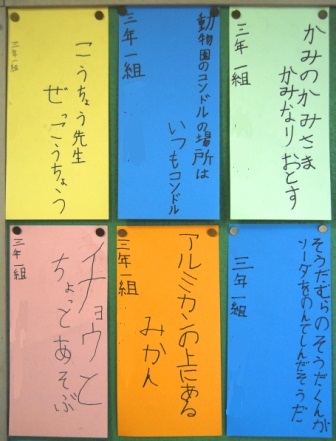 かみのかみさま
かみなりおとす
三年一組
動物園のコンドルの場所は
いつもコンドル
三年一組
こうちょう先生
ぜっこうちょう
三年一組
そうだむらのそうだくんが
ソーダをのんでしんだそうだ
三年一組
アルミカンの上にある
みかん
三年一組
イチョウと
ちょっとあそぶ
三年一組